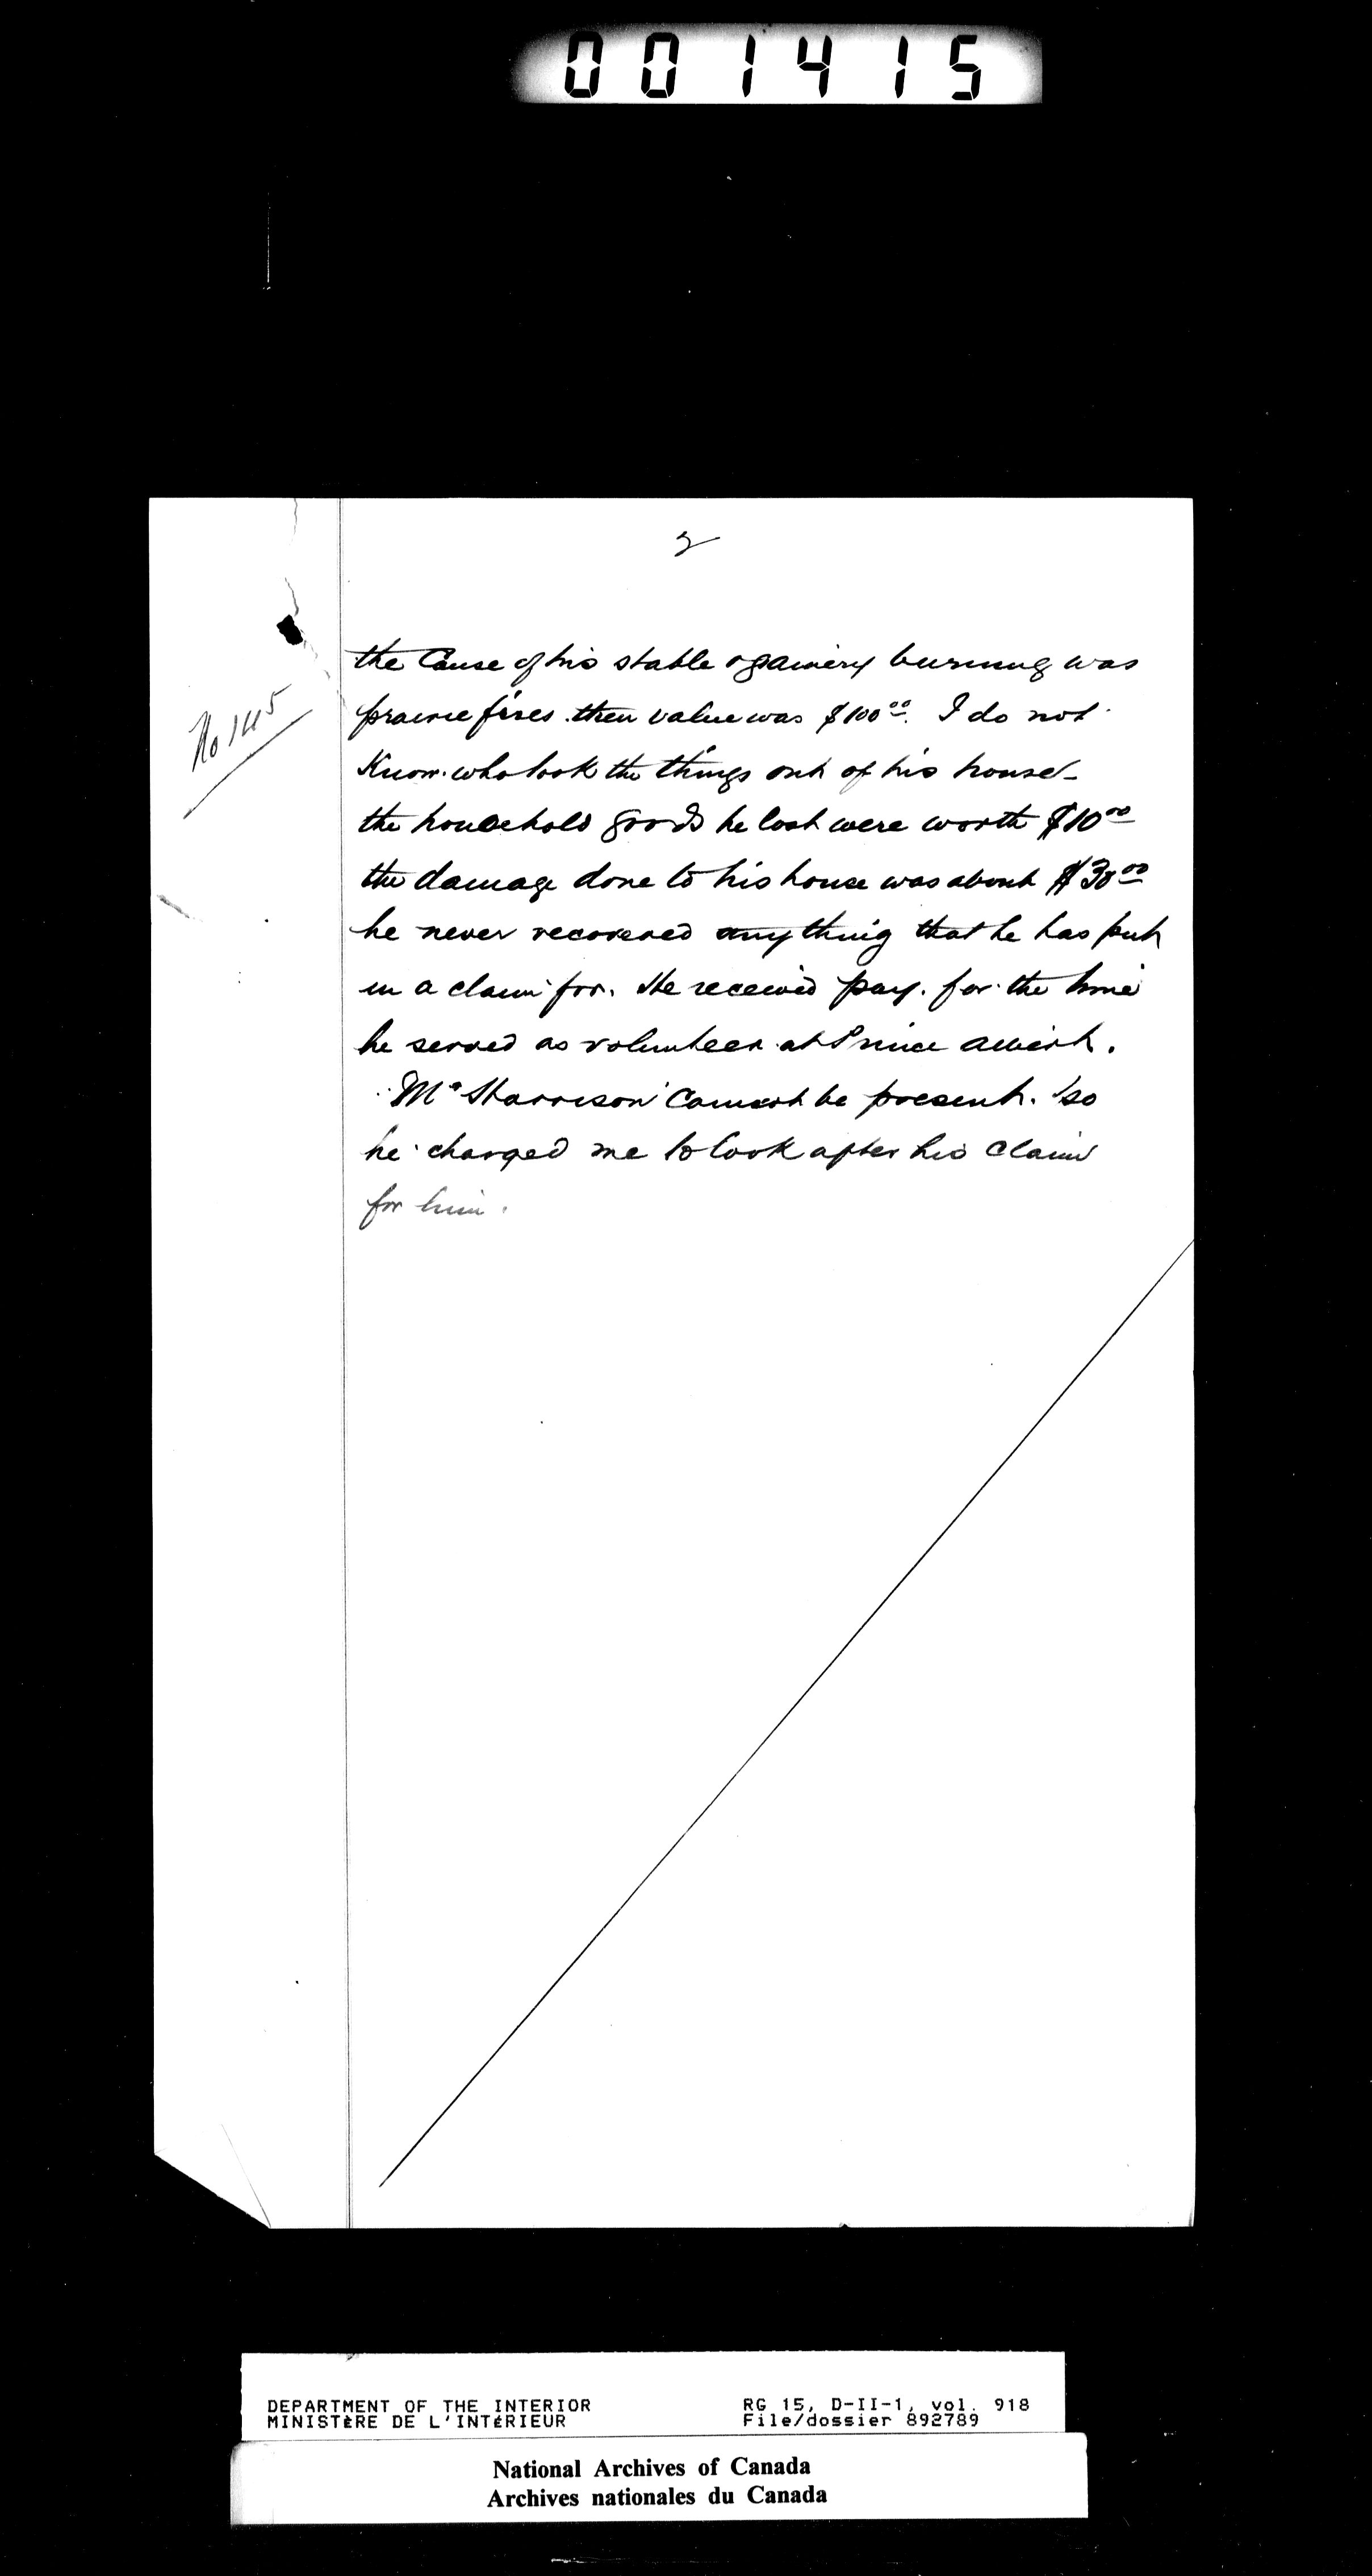 001415
2
the Cause of his stable & grainery burning was
No 145
prairie fires. their value was $100.00. I do not
Know. who took the things out of his house
the household goods he lost were worth $10.00
the damage done to his house was about $30.00
he never recovered anything that he has put
in a claim for. He received pay. for the time
he served as volunteer at Prince Albert.
Mr Harrison Cannot be present. so
he charged me to look after his Claim
for him.
DEPARTMENT OF THE INTERIOR
MINISTÈRE DE L'INTÉRIEUR
RG 15, D-II-1, vol. 918
File/dossier 892789
National Archives of Canada
Archives nationales du Canada